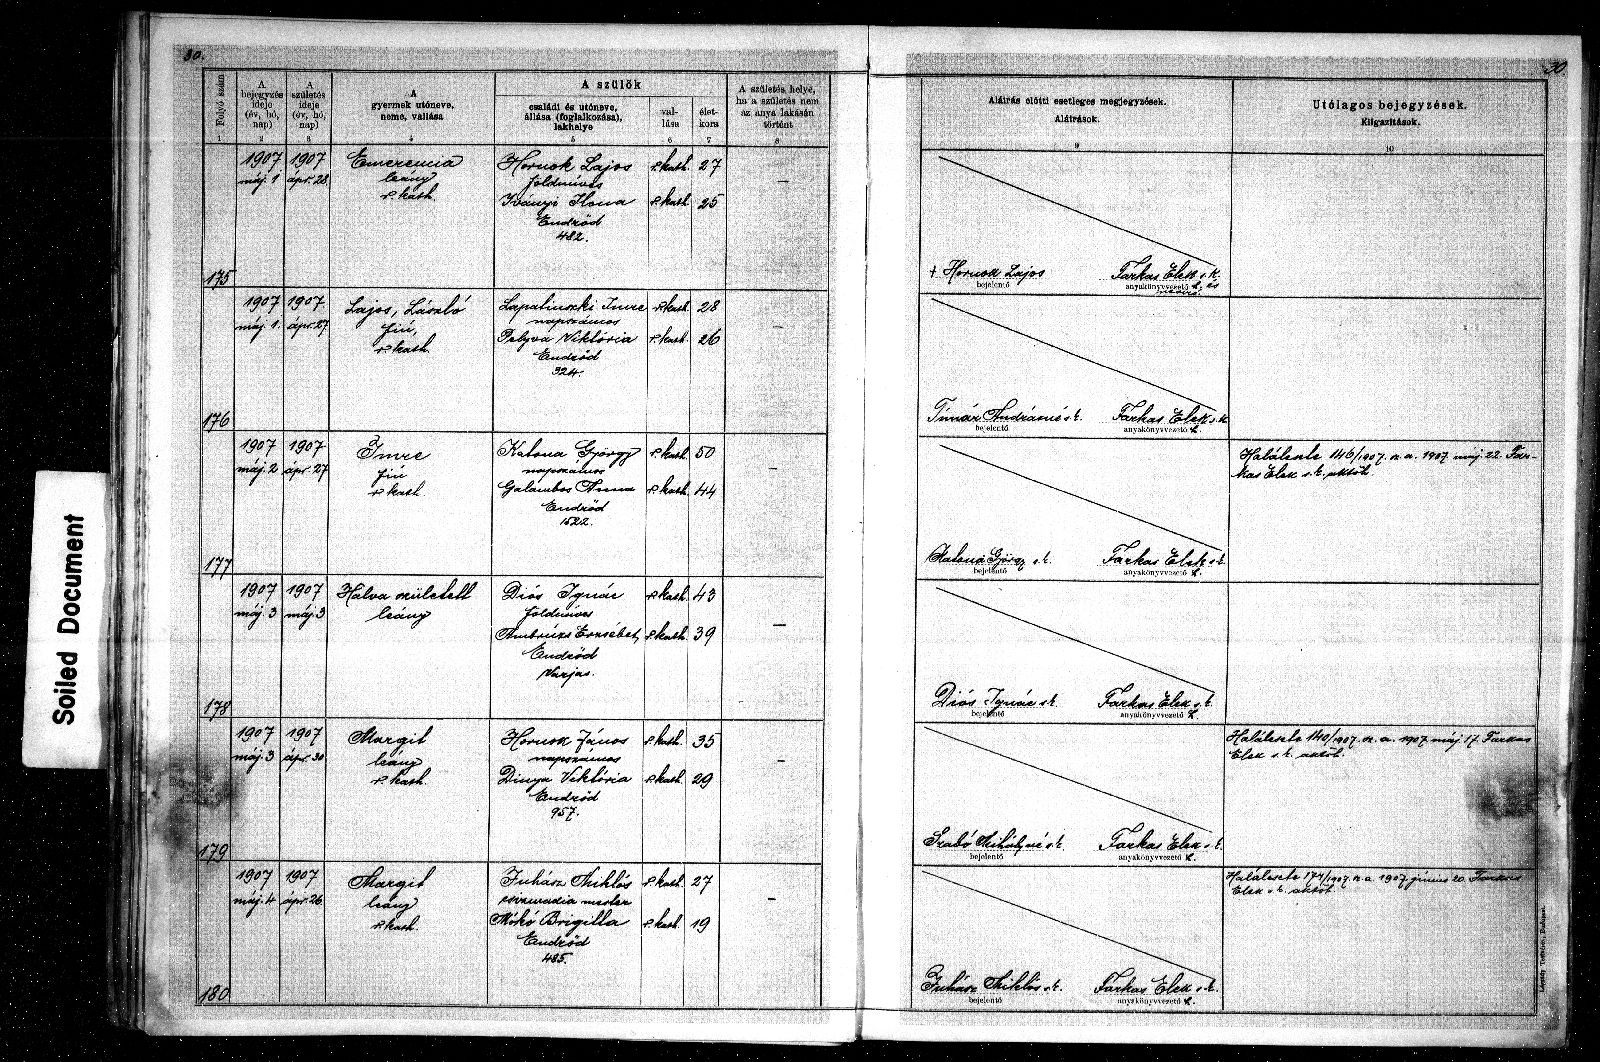 Soiled Document
30.
30
Folyó szám
A bejegyzés ideje (év, hó, nap)
A születés ideje (év, hó, nap)
A gyermek utóneve, neme, vallása
A szülők
családi és utóneve, állása (foglalkozása), lakhelye
vallása
életkora
A születés helye, ha a születés nem az anya lakásán történt
Aláírás előtti esetleges megjegyzések.
Aláírások.
Utólagos bejegyzések.
Kiigazítások.
1 2 3 4 5 6 7 8 9 10
175
1907 máj. 1
1907 ápr. 28
Emerencia
leány
r. kath.
Hornok Lajos r. kath. 27
földműves
Iványi Ilona r. kath. 25
Endrőd
482.
–
+ Hornok Lajos
bejelentő
Farkas Elek s. k.
anyakönyvvezető h. és
névíró.
176
1907 máj. 1.
1907 ápr. 27
Lajos, László
fiú,
r. kath.
Lapatinszki Imre r. kath. 28
napszámos
Viktória r. kath. 26
Endrőd
324.
–
Tímár Andrásné s. k.
bejelentő
Farkas Elek s. k.
anyakönyvvezető h.
177
1907 máj. 2
1907 ápr. 27
Imre
fiú
r. kath.
Katona György r. kath. 50
napszámos
Galambos Anna r. kath. 44
Endrőd
1522.
–
Katona György s. k.
bejelentő
Farkas Elek s. k.
anyakönyvvezető h.
Haláleste 146/1907. sz. a. 1907. máj. 22. Far-
kas Elek s. k. aktőh.
178
1907 máj. 3
1907 máj. 3
Halva született
leány
Diós Ignác r. kath. 43
földműves
Ambrúzs Erzsébet, r. kath. 39
Endrőd
Varjas.
–
Diós Ignác s. k.
bejelentő
Farkas Elek s. k.
anyakönyvvezető h.
179
1907 máj. 3
1907 ápr. 30
Margit
leány
r. kath.
Hornok János r. kath. 35
napszámos
Dinya Viktória r. kath. 29
Endrőd
957.
–
Szabó Mihályné s. k.
bejelentő
Farkas Elek s. k.
anyakönyvvezető h.
Haláleste 140/1907. sz. a. 1907. máj. 17. Farkas
Elek s. k. aktőh.
180
1907 máj. 4
1907 ápr. 26
Margit
leány
r. kath.
Juhász Miklós r. kath. 27
csizmadia mester
Mikó Brigitta r. kath. 19
Endrőd
485.
–
Juhász Miklós s. k.
bejelentő
Farkas Elek s. k.
anyakönyvvezető h.
Haláleste 174/1907. sz. a. 1907. június 20. Farkas
Elek s. k. aktőh.